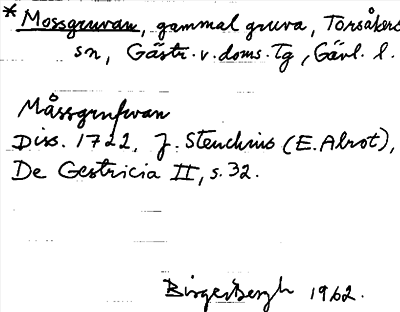 * Mossgruvan, gammal gruva, Torsåkers
sn, Gästr. v. doms. Tg, Gävl. l.
Måssgrufwan
Diss. 1722, J. Stenchius (E. Alrot),
De Gestricia II, s. 32.
Birger Bergh 1962.